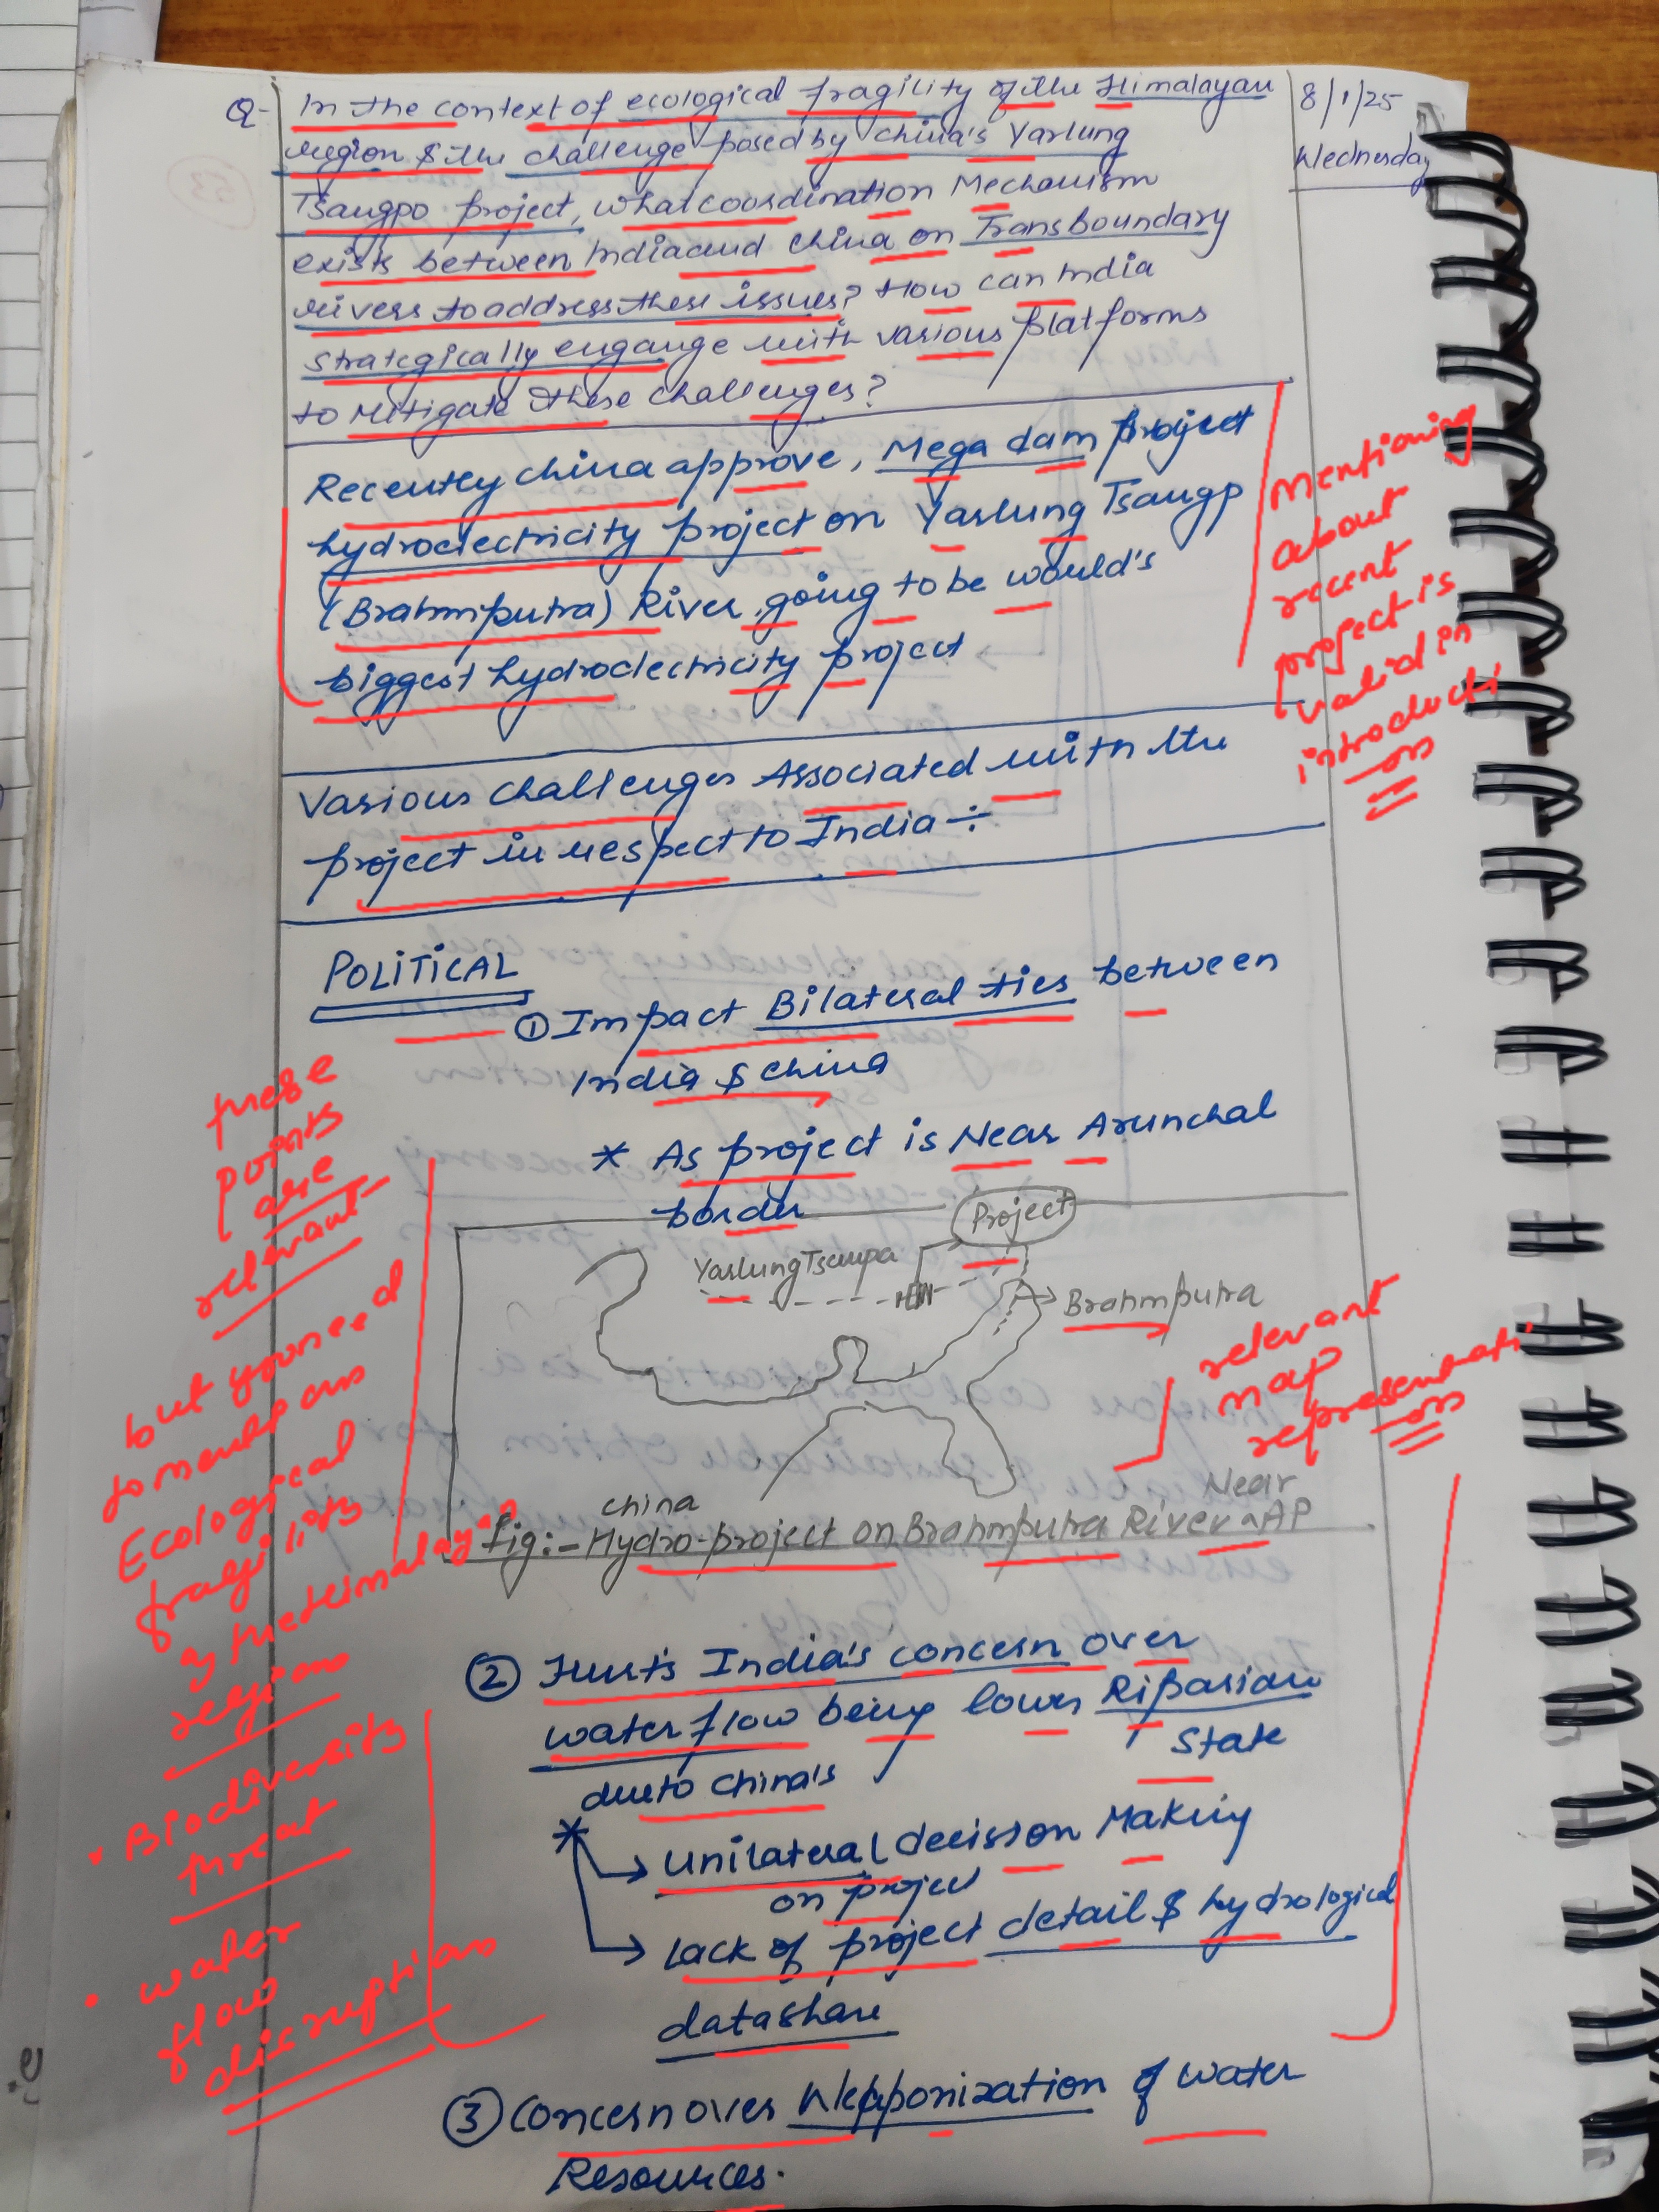 Q- In the context of ecological fragility of the Himalayan
region & the challenge posed by China's Yarlung
Tsangpo project, what coordination Mechanism
exists between India and China on TransBoundary
rivers to address these issues? How can India
strategically engange with various platforms
to mitigate these challenges?
8/1/25
Wednesday
Recently China approve, Mega dam project
hydroelectricity project on Yarlung Tsangp
(Brahmputra) River going to be would's
biggest hydroelectricity project
Mentioning
about
recent
project is
valid in
introducti
on
Various challenges Associated with the
project in respect to India ÷
POLITICAL
① Impact Bilateral ties between
India & China
* As project is Near Arunchal
border
these
points
are
relevant
but you need
to mention
Ecological
fragility
of the Himalayan
region
• Biodiversity
threat
• water
flow
disruption
Project
Yarlung Tsanpa
Brahmputra
relevant
map
representati
on
China
Near
fig:- Hydro-project on Brahmputra River ^ AP
② Hurts India's concern over
water flow being lower Riparian
State
due to China's
* → Unilateral decisson Making
on project
→ Lack of project detail & hydrological
data share
③ Concern over Weaponization of water
Resources.